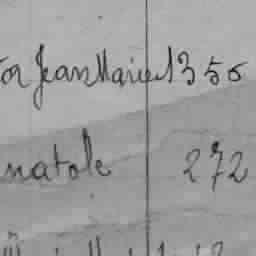 Jean Marie 1356
natole 272